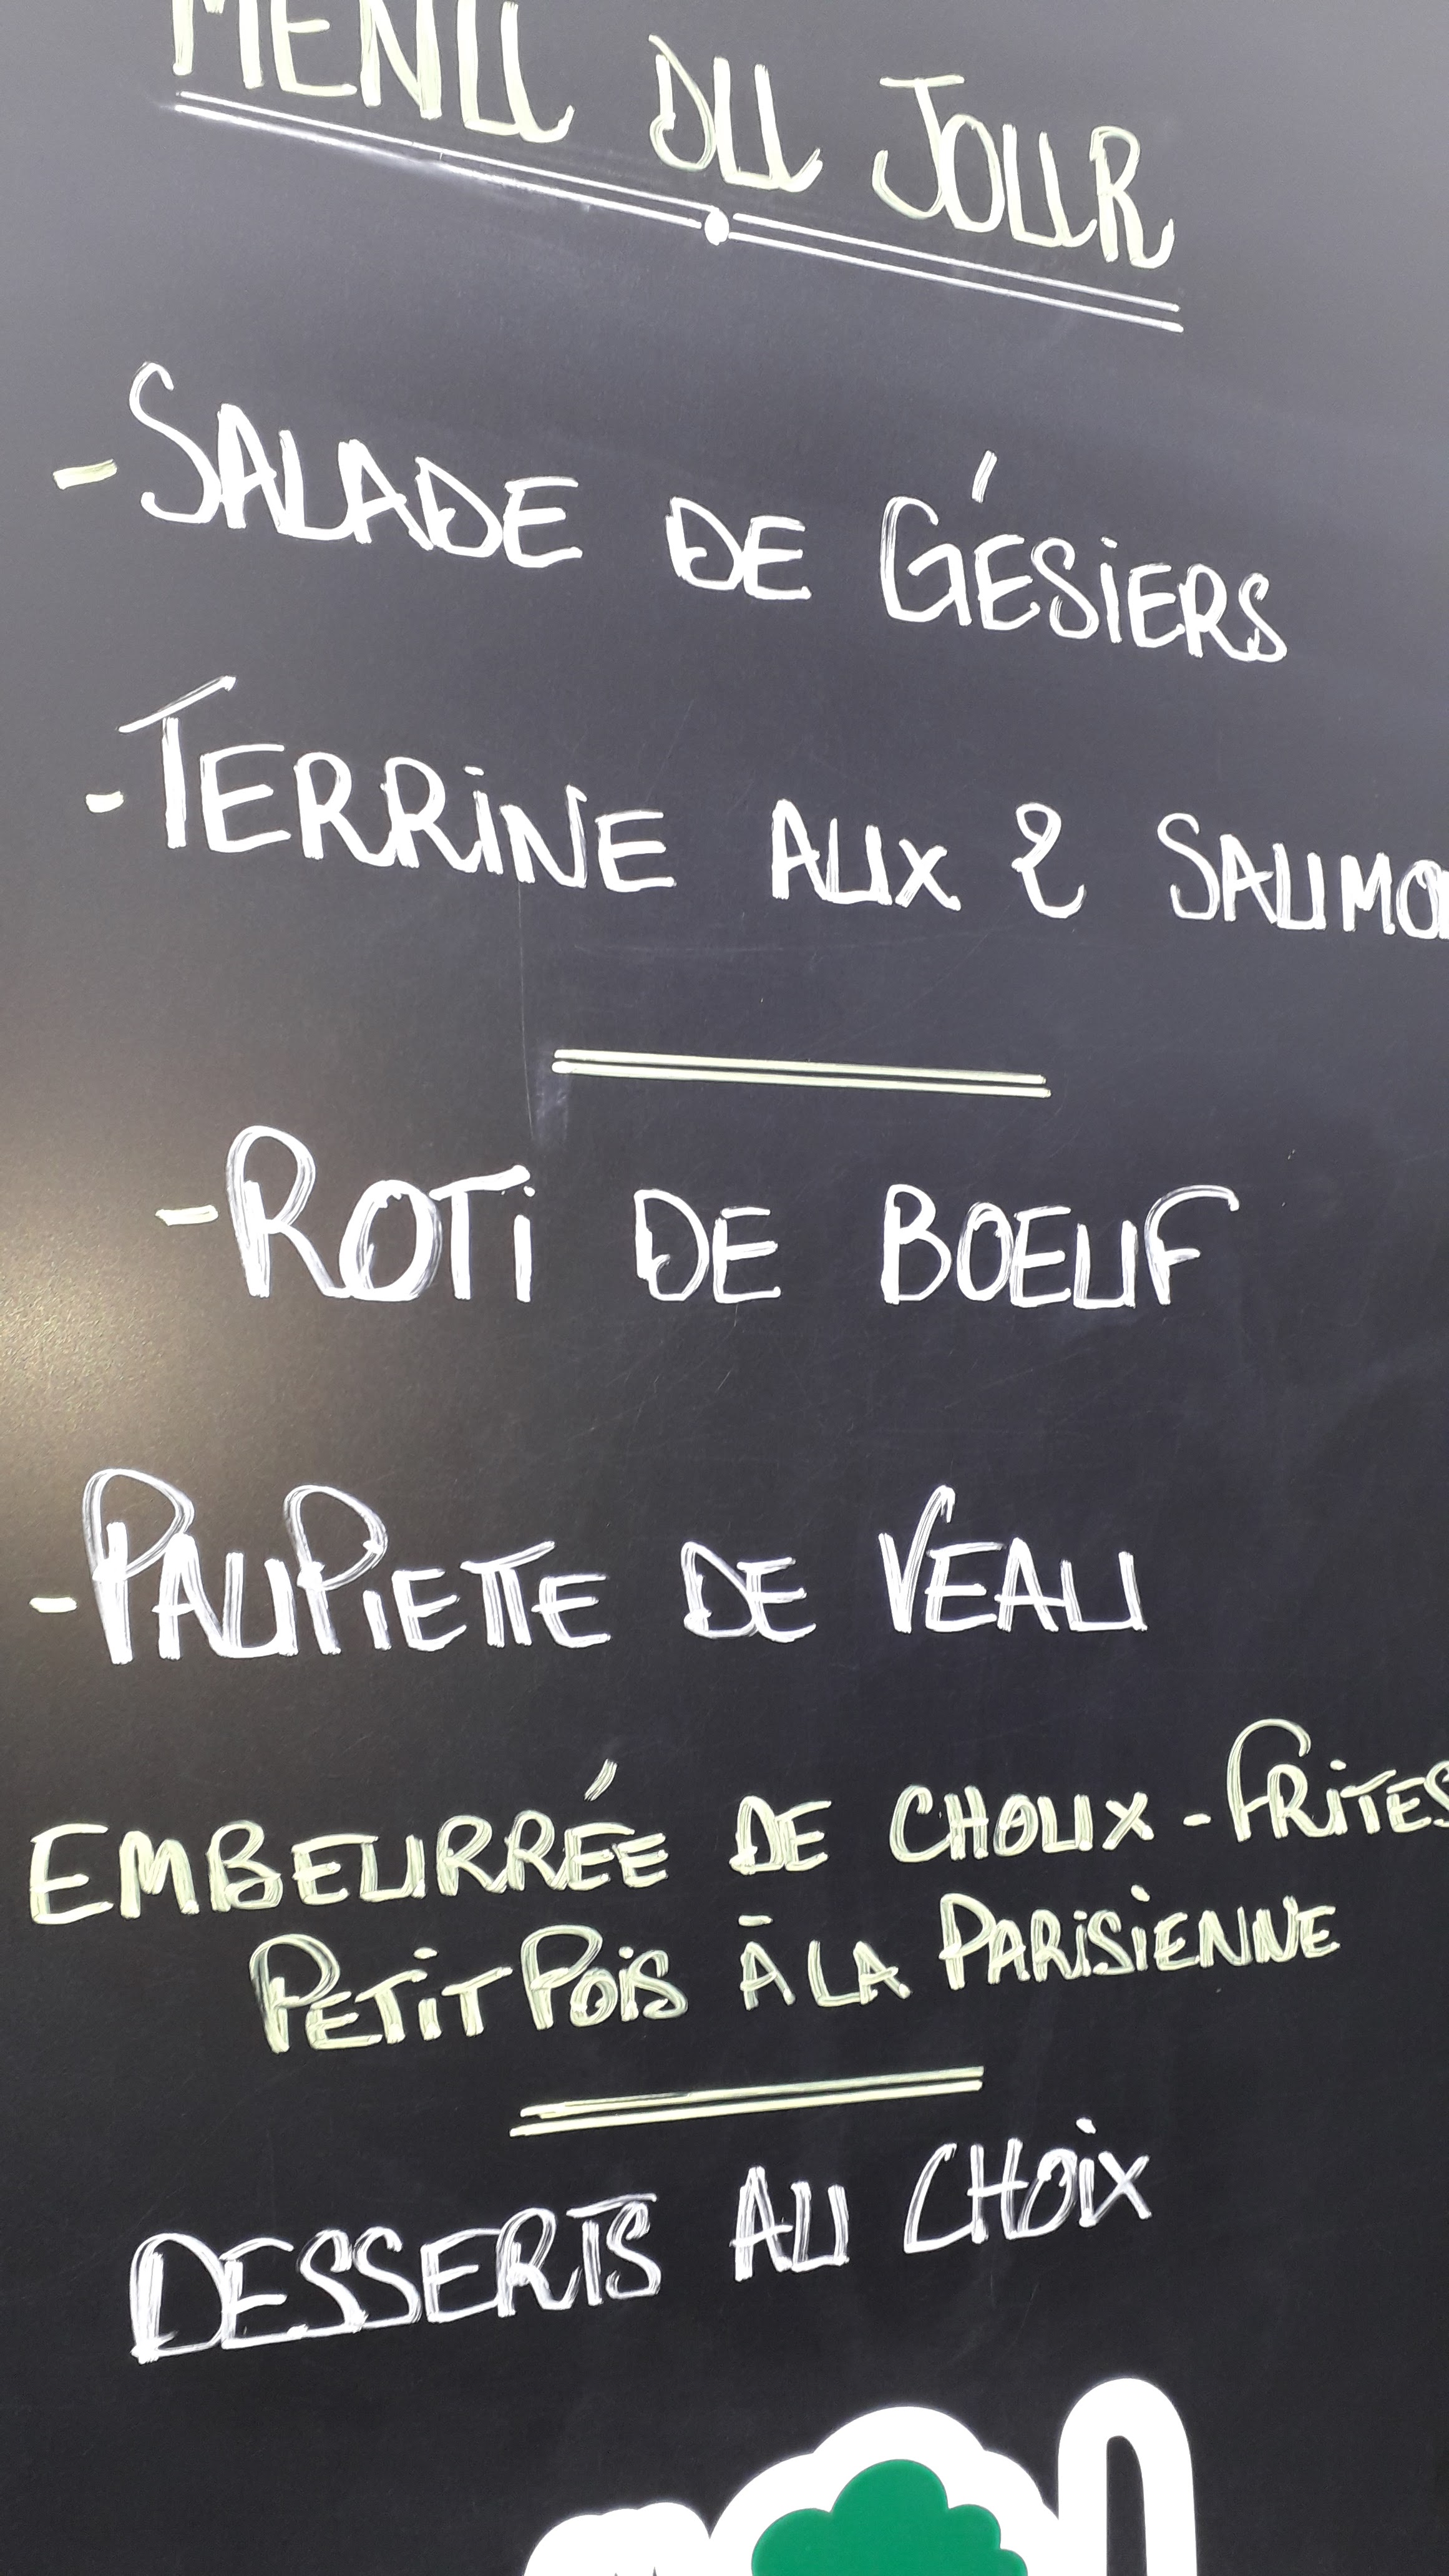 MENU DU JOUR
- SALADE DE GÉSIERS
- TERRINE AUX 2 SAUMO
- ROTI DE BOEUF
- PAUPIETTE DE VEAU
EMBEURRÉE DE CHOUX - FRITES
PETIT POIS À LA PARISIENNE
DESSERTS AU CHOIX